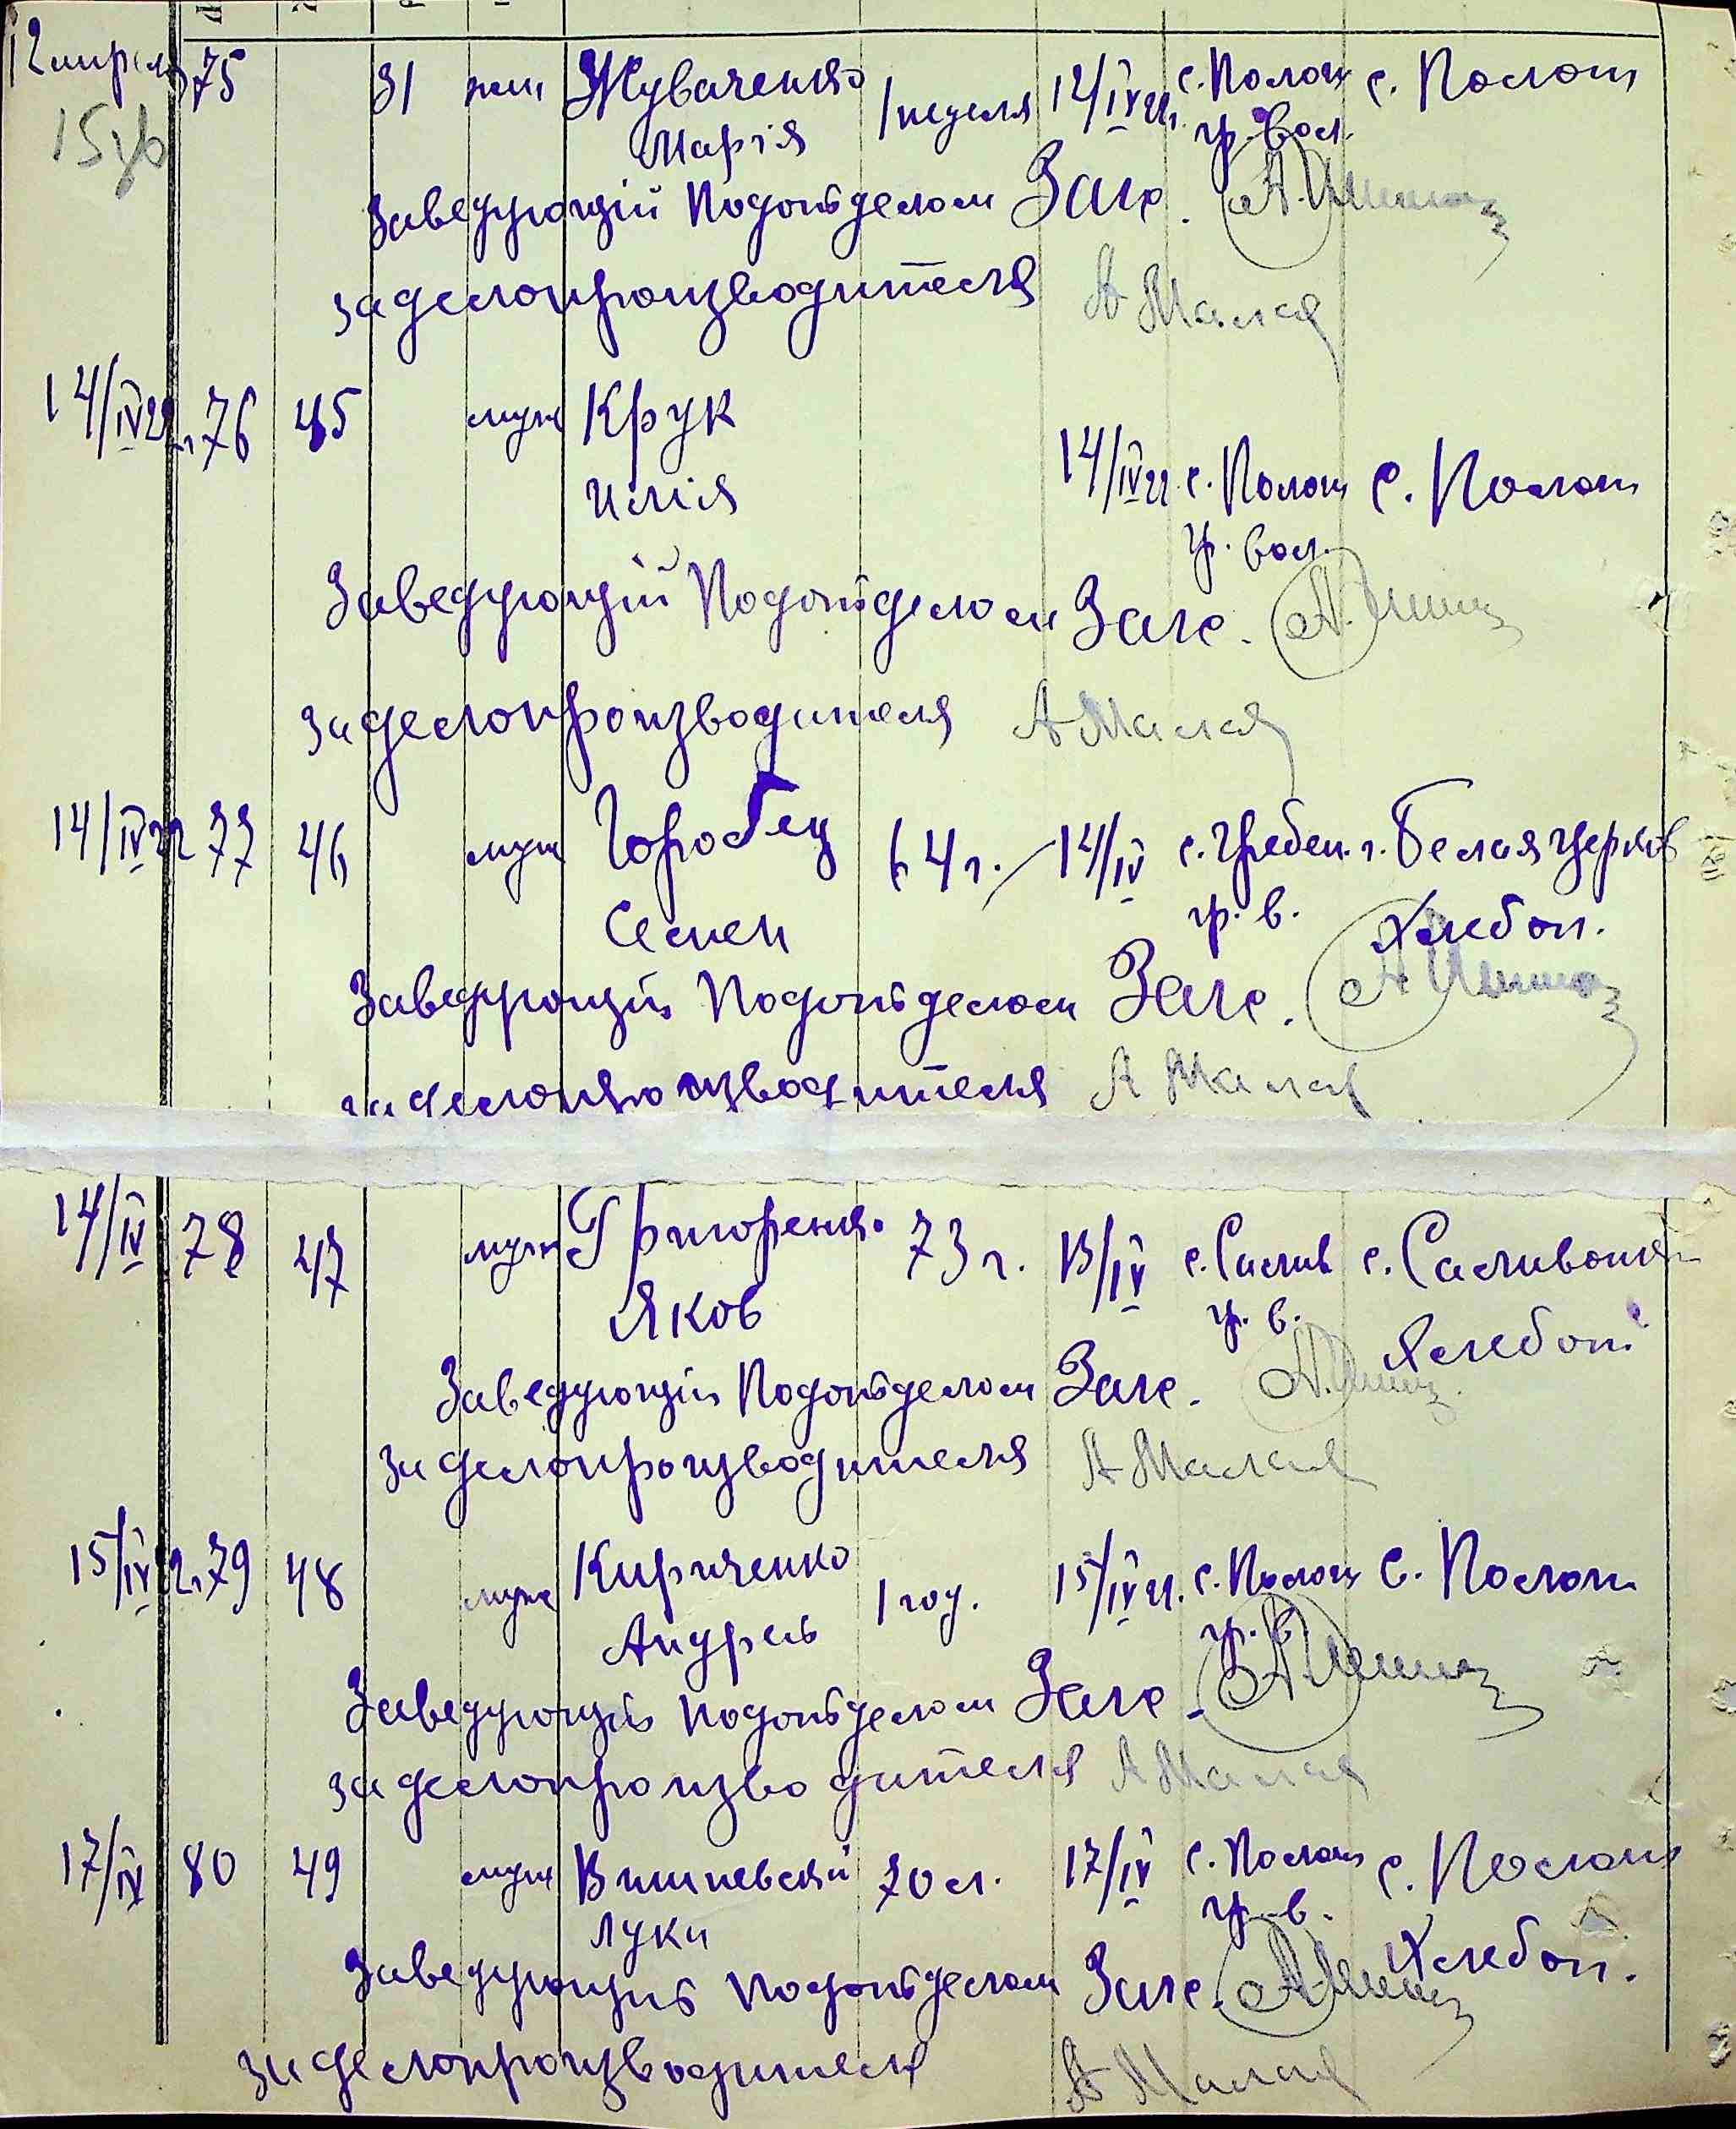 12 апреля 75 31 жен Жуваченко 1 неделя 12/IV 22г. с. Полог с. Полог
Марія гр. вол.
Заведующій Подотделом Загс.
за делопроизводителя А Малая
14/IV 22г. 76 45 муж Крук 14/IV 22. с. Полог с. Полог
Илія гр. вол.
Заведующій Подотделом Загс.
за делопроизводителя А Малая
14/IV 22 77 46 муж Горобец 64 г. 14/IV с. Гребен. г. Белая Церковь
Семен гр. в. Хлебоп.
Заведующій Подотделом Загс.
за делопроизводителя А Малая
14/IV 78 47 муж Григоренко 73 г. 13/IV с. Салив с. Саливонки
Яков гр. в. Хлебоп.
Заведующій Подотделом Загс.
за делопроизводителя А Малая
15/IV 22. 79 48 муж Кириченко 1 год. 15/IV 22. с. Полог с. Полог
Андрей гр. в.
Заведующій Подотделом Загс.
за делопроизводителя А Малая
17/IV 80 49 муж Вишневский 70 л. 17/IV с. Полог с. Полог
Лука гр. в. Хлебоп.
Заведующій Подотделом Загс.
за делопроизводителя А Малая